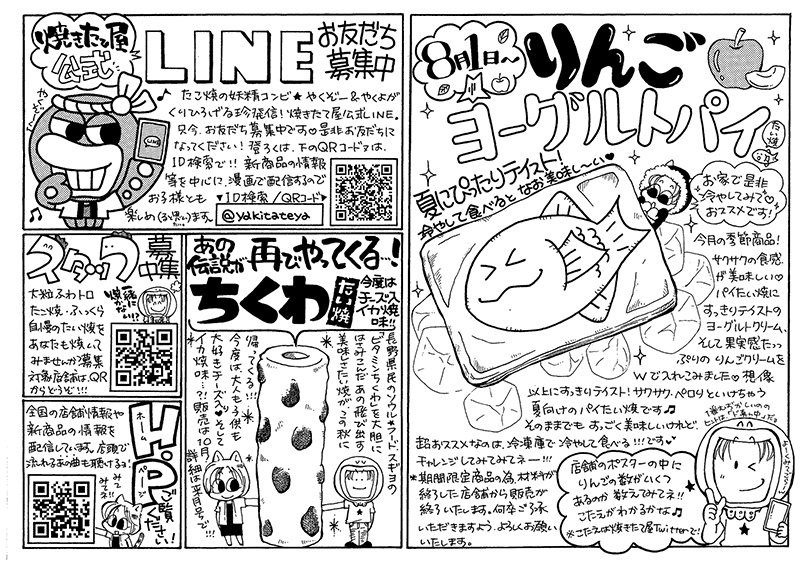 焼きたて屋
公式
LINE
お友だち
募集中
たこ焼の妖精コンビ★やくぞー&やくよが
くりひろげる珍発信!焼きたて屋公式LINE。
只今、お友だち募集中です♡是非お友だちに
なってください!登ろくは、下のQRコード又は、
ID検索で!!新商品の情報
等を中心に、漫画で配信するので
お子様とも
楽しめ(る思い)ます。
▼ID検索/QRコード▼
@yakitateya
スタッフ
募集中
一緒に
焼かない!?
大粒ふわトロ
たこ焼・ふっくら
自慢のたい焼を
あなたも焼いて
みませんか?募集
対象店舗は、QR
からどうぞ!!!
全国の店舗情報や
新商品の情報を
配信しています。店頭で
流れるあの曲も聴けるヨ!
ホームページ
H.P
ご覧
ください!
みてネ
みてネ!!
あの
伝説が
再びやってくる…!
ちくわ
たい焼
今度は
チーズ入
イカ焼
味!!
長野県民のソウルフードスギヨの
「ビタミンちくわ」を大胆に
はさみこんだあの飛び出す
美味しさたい焼が、この秋に
帰ってくる…!!!
今度は、大人も子供も
大好きチーズ♡そして
イカ焼味…?!販売は10月!
詳細は来月号で!!!
8月1日〜
りんご
ヨーグルトパイ
たい焼
夏にぴったりテイスト!
冷やして食べるとなお美味し〜い♡
お家で是非
冷やしてみて♡
おススメです!
今月の季節商品!
サクサクの食感
が美味しい♡
パイたい焼に
すっきりテイストの
ヨーグルトクリーム、
そして果実感たっ
ぷりのりんごクリームを
Wで入れこみました♡想像
以上にすっきりテイスト!サクサク・ペロリといけちゃう
夏向けのパイたい焼です♫
そのままでもすっごく美味しいけれど
超おススメなのは、冷凍庫で冷やして食べる!!!です♡
チャレンジしてみてみてネー!!!
*期間限定商品の為、材料が
終了した店舗から販売が
終了いたします。何卒ご了承
いただきますよう、よろしくお願い
いたします。
店舗のポスターの中に
りんごの数がいくつ
あるのか数えてみてネ!!
こたえがわかるかな♫
*こたえは焼きたて屋Twitterで!